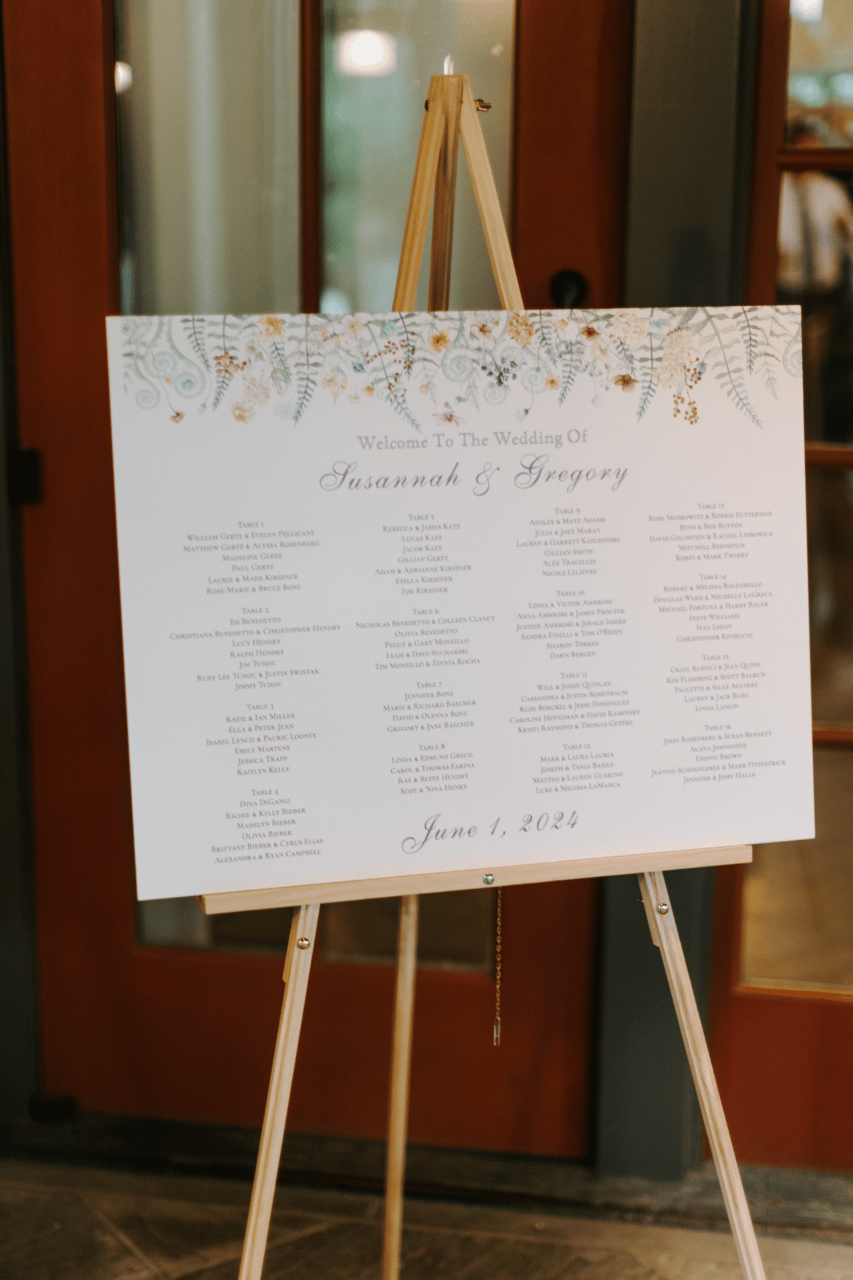 Welcome To The Wedding Of
Susannah & Gregory
Table 1
William Gertz & Evelyn Pellicane
Matthew Gertz & Alyssa Rosenberg
Madeline Gertz
Paul Gertz
Laurie & Mark Kirszner
Rose-Marie & Bruce Bone
Table 2
Ed Benedetto
Christiana Benedetto & Christopher Hendry
Lucy Hendry
Ralph Hendry
Jim Tchou
Ruby Lee Tchou & Justin Swistak
Jimmy Tchou
Table 3
Katie & Ian Miller
Ella & Peter Jean
Isabel Lynch & Pauric Looney
Emily Martens
Jessica Trapp
Kaitlyn Kelly
Table 4
Dina DiGangi
Richie & Kelly Bieber
Madelyn Bieber
Olivia Bieber
Brittany Bieber & Cyrus Elias
Alexandra & Ryan Campbell
Table 5
Rebecca & James Katz
Lucas Katz
Jacob Katz
Gillian Gertz
Adam & Adrianne Kirszner
Stella Kirszner
Zoe Kirszner
Table 6
Nicholas Benedetto & Colleen Clancy
Olivia Benedetto
Peggy & Gary Monzillo
Leah & Dave Sucharski
Tim Monzillo & Zinnia Rocha
Table 7
Jennifer Bone
Marie & Richard Baecher
David & Olenna Bone
Gregory & Jane Baecher
Table 8
Linda & Edmund Greco
Carol & Thomas Farina
Ray & Betsy Hendry
Scot & Nina Henry
Table 9
Ashley & Matt Adams
Julia & Joey Maray
Lauren & Garrett
Gillian Smith
Alex
Nicole
Table 10
Linda & Victor Ambrose
Anna Ambrose & James Procter
Justine Ambrose & Jerald
Sandra Pinelli & Tim O'Brien
Sharon Torren
Dawn Bergen
Table 11
Will & Jessie Quinlan
Cassandra & Justin Rosenbaum
Kloe Boechel & Jesse Dominguez
Caroline Heyneman & David Kaminsky
Kristi Raymond & Thomas
Table 12
Mark & Laura Lauria
Joseph & Tania Babile
Matteo & Lauren Guarino
Luke & Melissa LaMarca
Table 13
Rose Moskowitz & Robbie Futterman
Beth & Bob Button
David Goldstein & Rachel Leibowicz
Mitchell Bernstein
Robin & Mark Tweery
Table 14
Robert & Melissa Balsamello
Douglas Ward & Michelle LaGreca
Michael Fortuna & Harry Bager
Steve Williams
Ivan Legan
Christopher
Table 15
Craig Rustici & Jean Quinn
Kim Flemming & Scott Balkun
Paulette & Silas Aguirre
Lauren & Jack Burg
Linda Langin
Table 16
John Rosenberg & Susan Bennett
Alana Johnstone
Ebonie Brown
Jeannie Schoenleber & Mark Fitzpatrick
Jennifer & John Halls
June 1, 2024